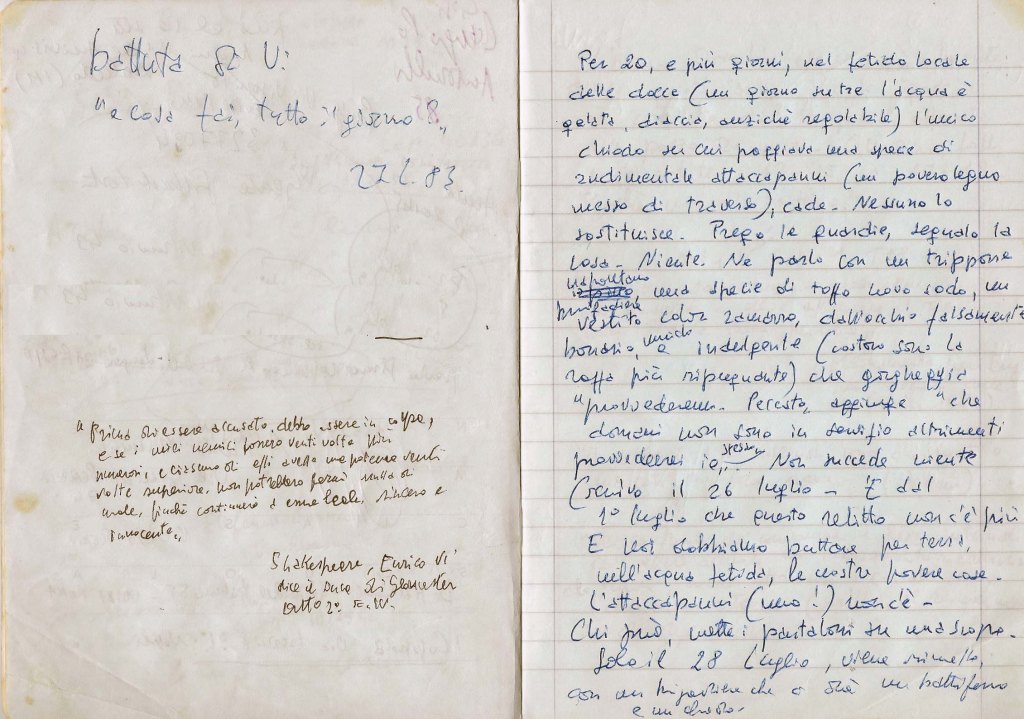 battuta di V:
"e cosa fai, tutto il giorno"
27.6.83.
"Prima di essere accusato, debbo essere in colpa,
e se i miei nemici fossero venti volte più
numerosi, e ciascuno di essi avesse una potenza venti
volte superiore, non potrebbero farmi nulla di
male, finché continuerò a esser leale, sincero e
innocente",
Shakespeare, Enrico VI
dice il Duca di Gloucester
atto 2°
Per 20, e più giorni, nel fetido locale
delle docce (un giorno su tre l'acqua è
gelata, diaccia, anziché regolabile) l'unico
chiodo su cui poggiava una specie di
rudimentale attaccapanni (un povero legno
messo di traverso), cade. Nessuno lo
sostituisce. Prego le guardie, segnalo la
cosa. Niente. Ne parlo con un trippone
napoletano
una specie di toffo novo sodo, un
brigadiere
vestito color zamarro, dall'occhio falsamente
bonario, e indulgente (costoro sono la
razza più ripugnante) che gorgheggia
"provvederemo. Peccato, aggiunge "che
domani non sono in servizio altrimenti
provvederei io stesso". Non succede niente
(scrivo il 26 luglio - È dal
1° luglio che questo relitto non c'è più
E noi dobbiamo buttare per terra,
nell'acqua fetida, le nostre povere cose.
L'attaccapanni (uno!) non c'è -
Chi può, mette i pantaloni su una scopa.
Solo il 28 luglio, viene rimesso,
con un brigadiere che ci dà un
e un chiodo.